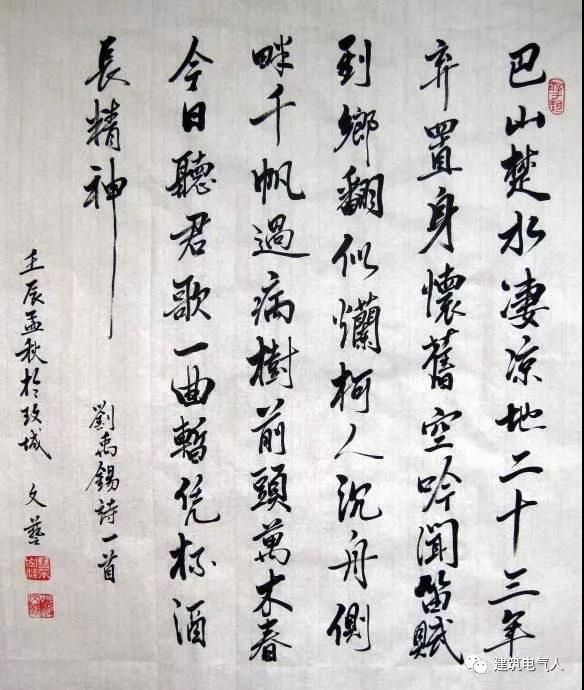 巴山楚水凄凉地二十三年
弃置身懷舊空吟聞笛賦
到鄉翻似爛柯人沉舟側
畔千帆過病樹前頭萬木春
今日聽君歌一曲暫凭杯酒
長精神
劉禹錫詩一首
壬辰孟秋於玫城 文藝
建筑电气人